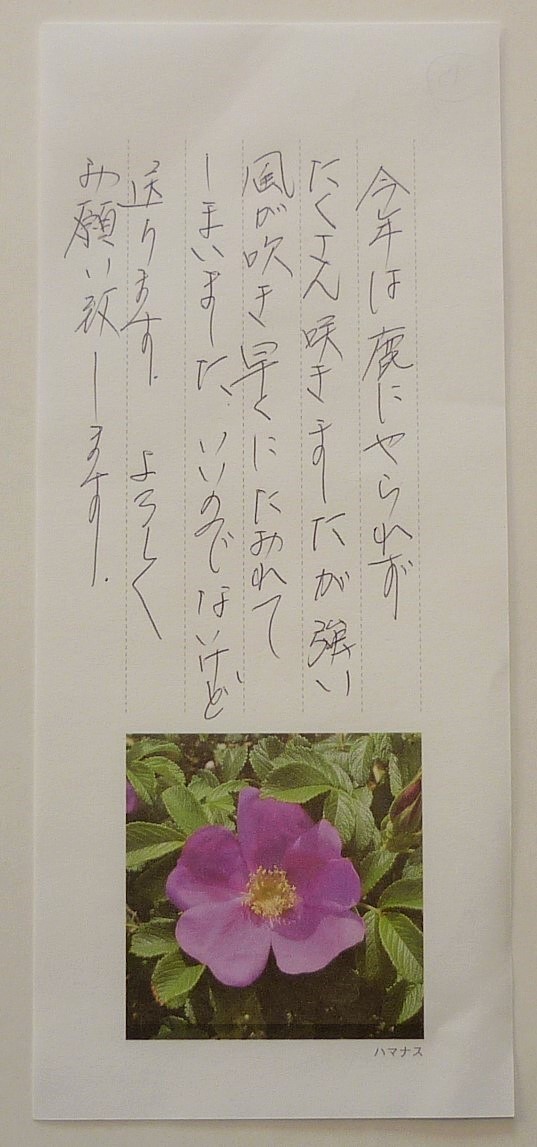 今年は鹿にやられず
たくさん咲きましたが強い
風が吹き早くにたおれて
しまいました、いいのでないけど
送ります。よろしく
お願い致します。
ハマナス